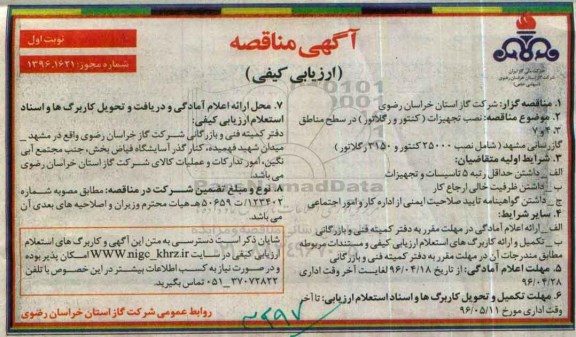 آگهی مناقصه
(ارزیابی کیفی)
نوبت اول
شماره مجوز: ۱۳۹۶،۱۶۳۱
شرکت ملی گاز ایران
شرکت گاز استان خراسان رضوی
(سهامی خاص)
۱. مناقصه گزار: شرکت گاز استان خراسان رضوی
۲. موضوع مناقصه: نصب تجهیزات (کنتور و رگلاتور) در سطح مناطق
۳، ۴ و ۷
گازرسانی مشهد (شامل نصب ۲۵۰۰۰ کنتور و ۳۱۵۰ رگلاتور)
۳. شرایط اولیه متقاضیان:
الف_ داشتن حداقل رتبه ۵ تاسیسات و تجهیزات
ب_ داشتن ظرفیت خالی ارجاع کار
ج_ داشتن گواهینامه تایید صلاحیت ایمنی از اداره کار و امور اجتماعی
۴. سایر شرایط:
الف_ ارائه اعلام آمادگی در مهلت مقرر به دفتر کمیته فنی و بازرگانی
ب_ تکمیل و ارائه کاربرگ های استعلام ارزیابی کیفی و مستندات مربوطه
مطابق مندرجات آن در مهلت مقرر به دفتر کمیته فنی و بازرگانی
۵. مهلت اعلام آمادگی: از تاریخ ۹۶/۰۴/۱۸ لغایت آخر وقت اداری
۹۶/۰۴/۲۸
۶. مهلت تکمیل و تحویل کاربرگ ها و اسناد استعلام ارزیابی: تا آخر
وقت اداری مورخ ۹۶/۰۵/۱۱
۷. محل ارائه اعلام آمادگی و دریافت و تحویل کاربرگ ها و اسناد
استعلام ارزیابی کیفی:
دفتر کمیته فنی و بازرگانی شرکت گاز خراسان رضوی واقع در مشهد _
میدان شهید فهمیده، کنار گذر آسایشگاه فیاض بخش، جنب مجتمع آبی
نگین، امور تدارکات و عملیات کالای شرکت گاز استان خراسان رضوی
می باشد.
۸. نوع و مبلغ تضمین شرکت در مناقصه: مطابق مصوبه شماره
۱۲۳۴۰۲/ت ۵۰۶۵۹هـ هیات محترم وزیران و اصلاحیه های بعدی آن
می باشد.
شایان ذکر است دسترسی به متن این آگهی و کاربرگ های استعلام
ارزیابی کیفی در سایت WWW nigc_khrz.ir امکان پذیر بوده
و در صورت نیاز به کسب اطلاعات بیشتر در این خصوص با تلفن
۳۷۰۷۲۸۲۲ _ ۰۵۱ تماس بگیرید.
روابط عمومی شرکت گاز استان خراسان رضوی